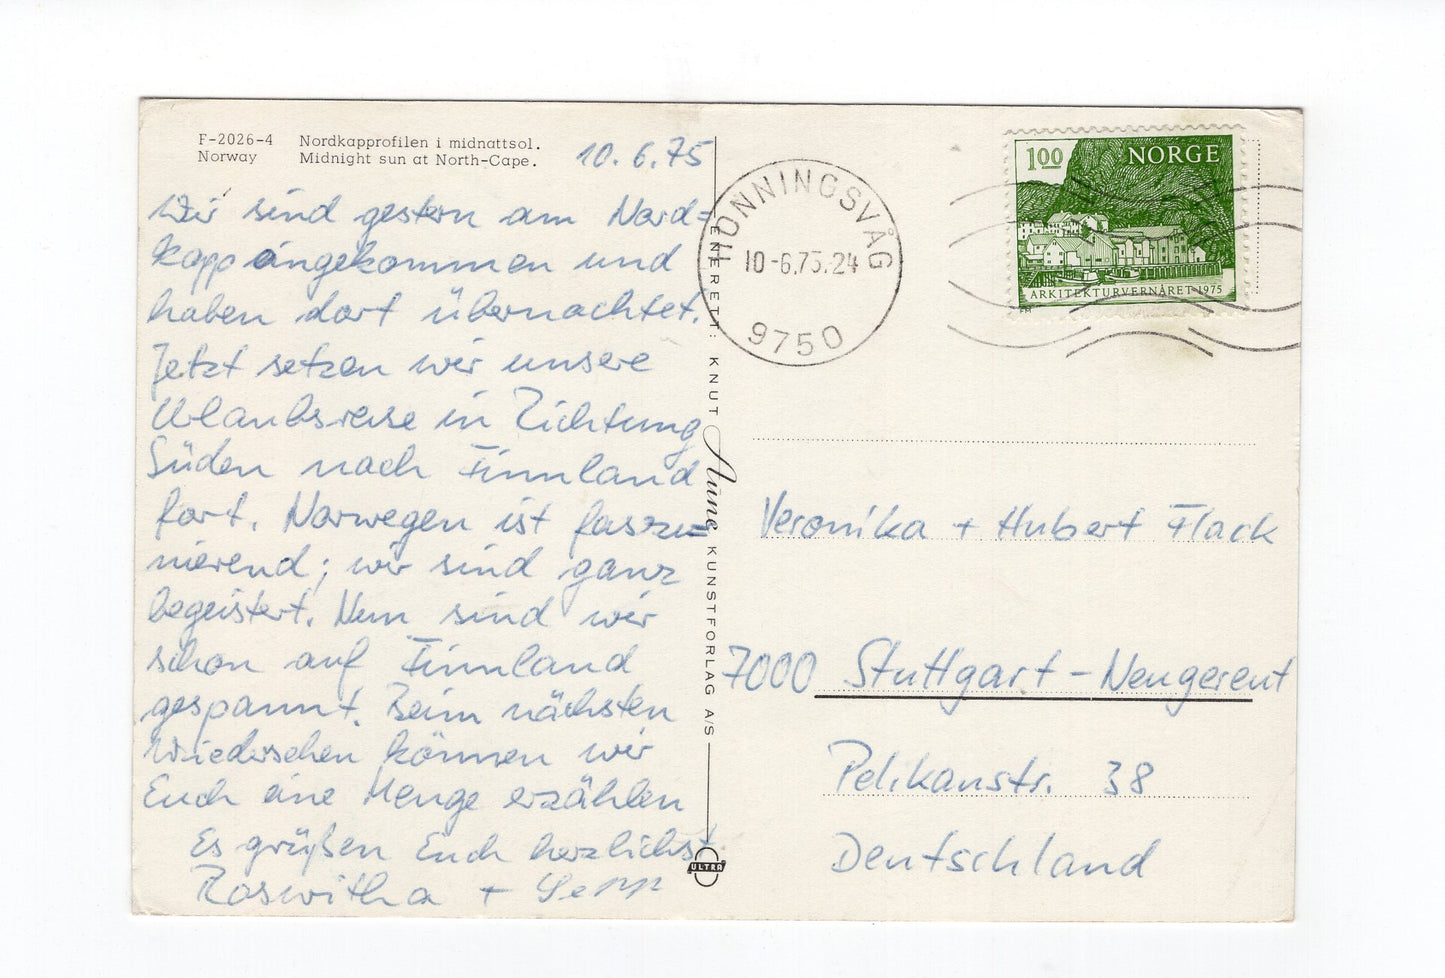 F-2026-4 Nordkapprofilen i midnattsol.
Norway Midnight sun at North-Cape.
10.6.75
Wir sind gestern am Nord=
kapp angekommen und
haben dort übernachtet.
Jetzt setzen wir unsere
Urlaubsreise in Richtung
Süden nach Finnland
fort. Norwegen ist faszi=
nierend; wir sind ganz
begeistert. Nun sind wir
schon auf Finnland
gespannt. Beim nächsten
Wiedersehen können wir
Euch eine Menge erzählen
Es grüßen Euch herzlichst
Roswitha + Sepp
ENERETT: KNUT Aune KUNSTFORLAG A/S
ULTRA
HONNINGSVÅG
10-6.75.24
9750
100 NORGE
ARKITEKTURVERNÅRET 1975
Veronika + Hubert Flack
7000 Stuttgart-Neugereut
Pelikanstr. 38
Deutschland